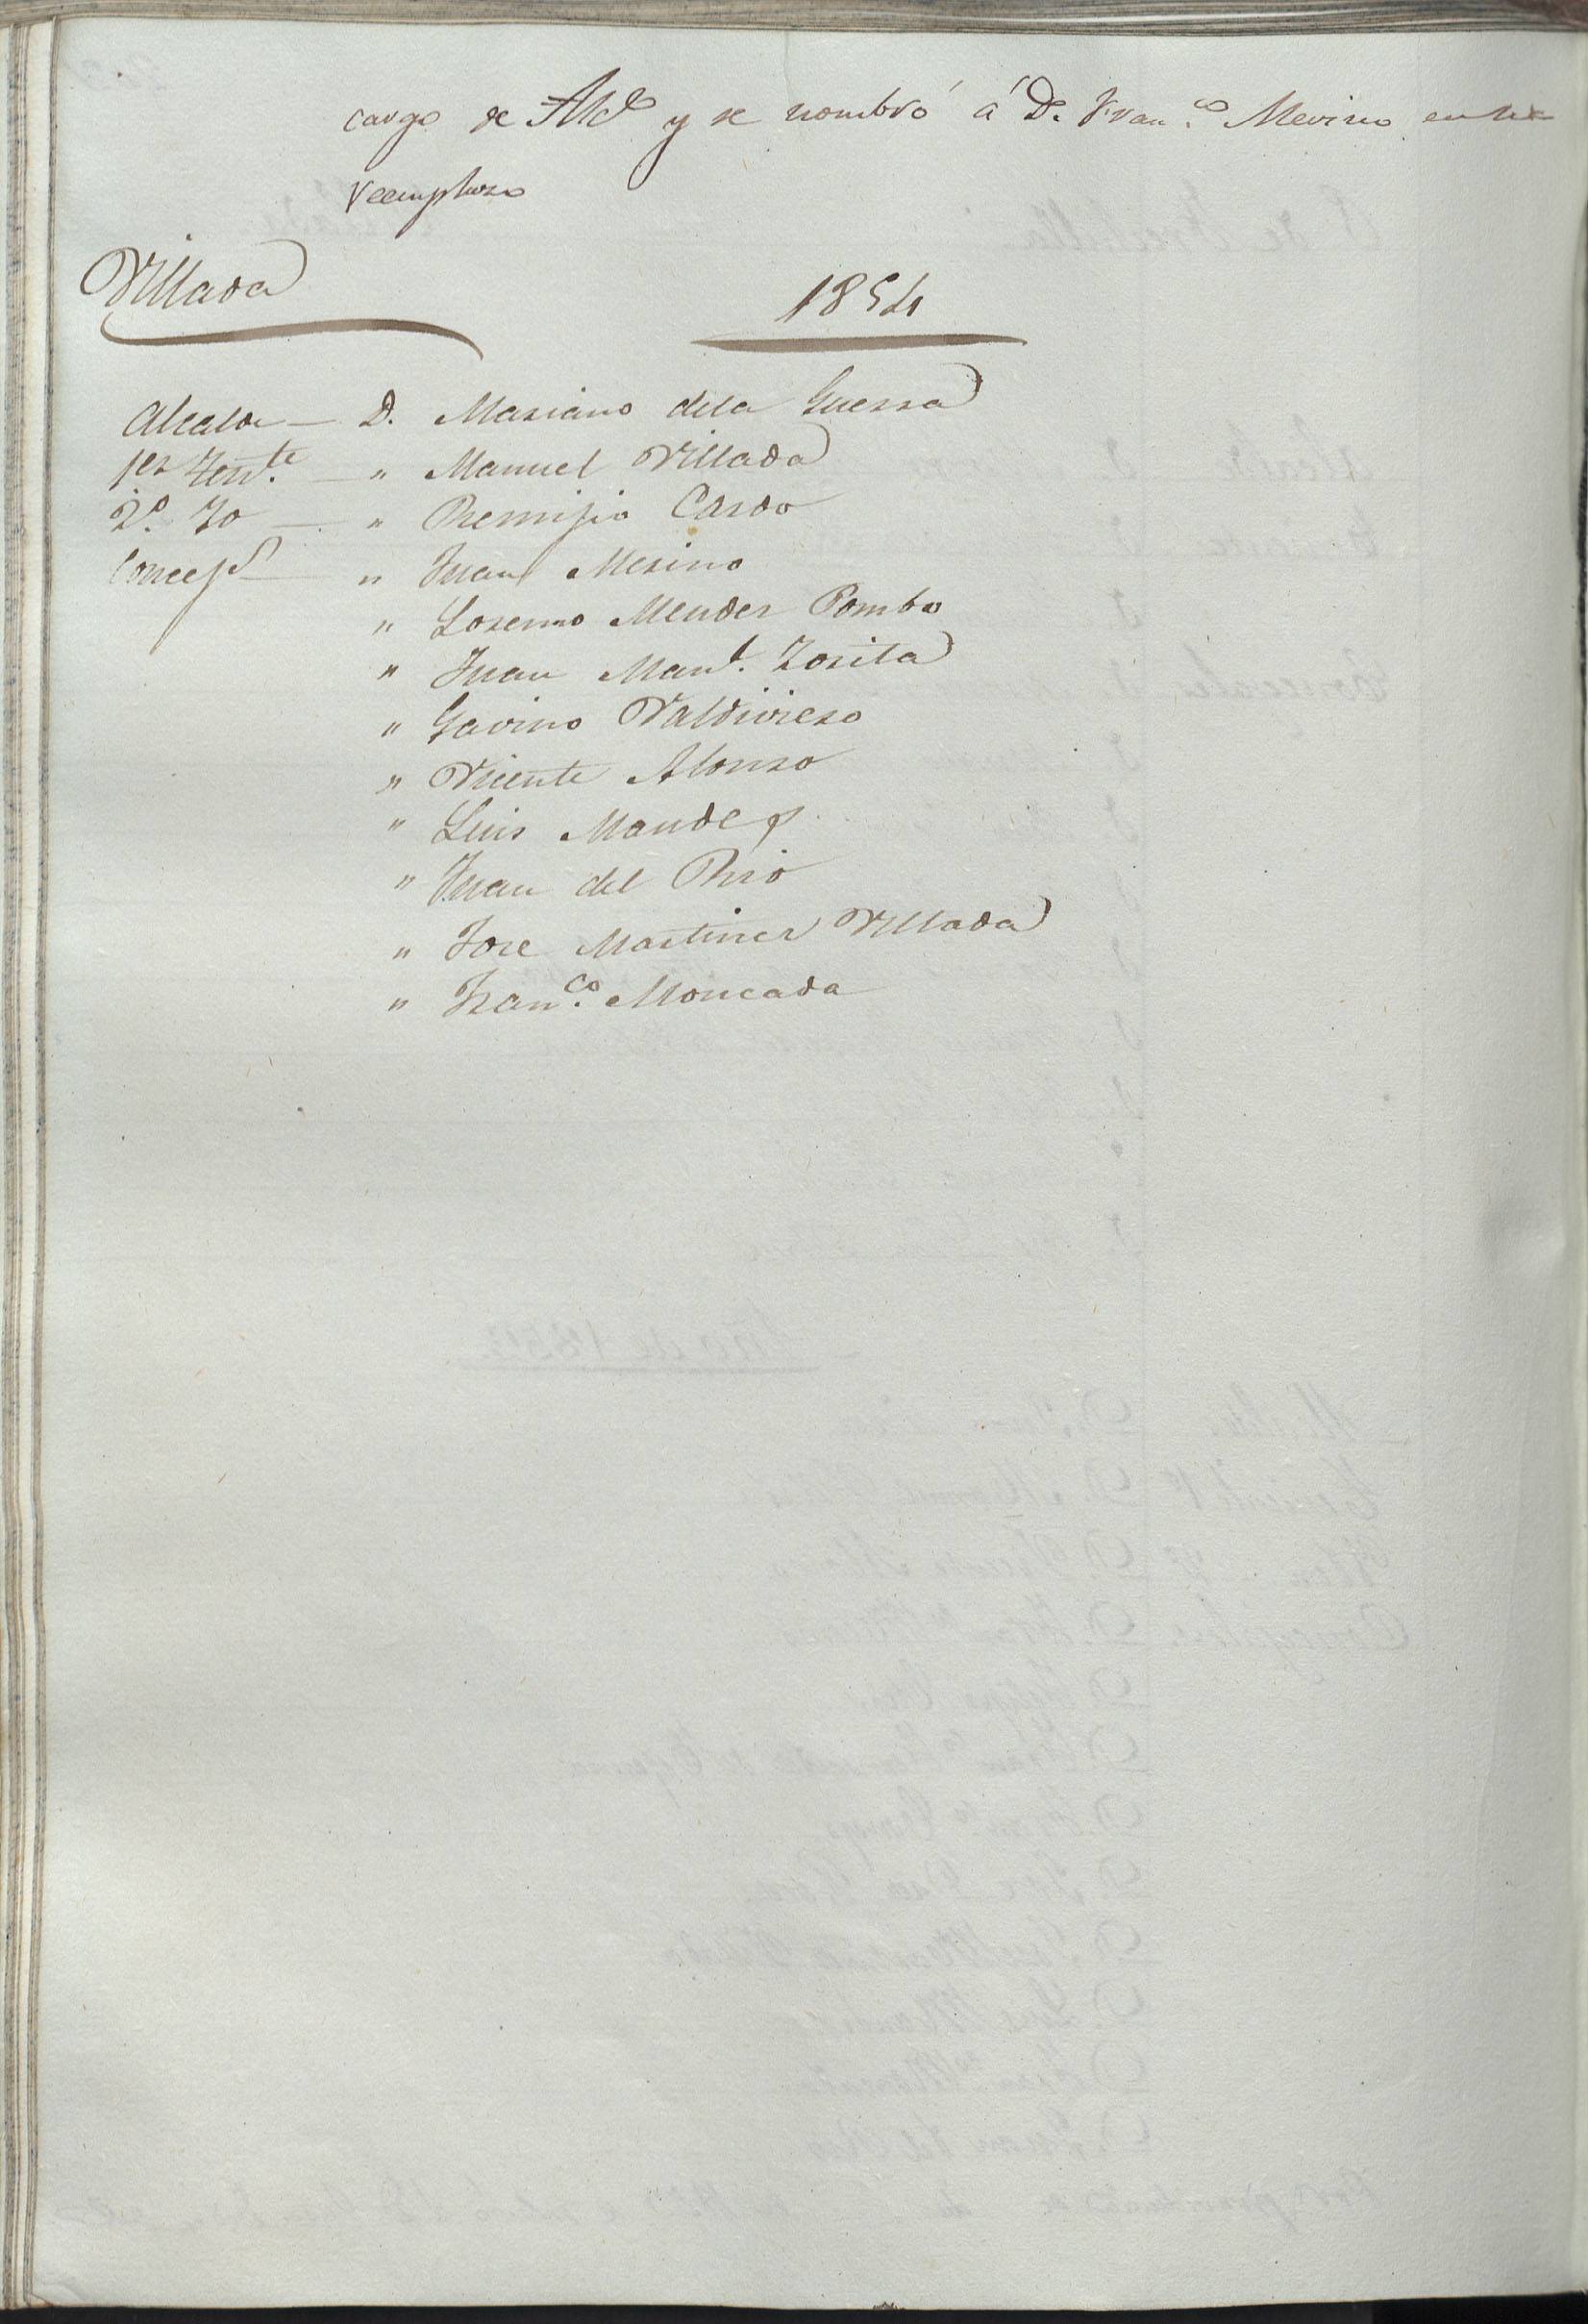 cargo de Alc.e y se nombró á D. Fran.co Merino en su
reemplazo
Villada
1854
Alcalde — D. Mariano dela Guerra
1er Tent.te — " Manuel Villada
2.o Yo — " Remijio Cardo
Concej.s — " Juan Merino
" Lorenzo Mendez Pombo
" Juan Man.l Zorita
" Gavino Valdivieso
" Vicente Alonso
" Luis Mande
" Juan del Rio
" Jose Martinez Villada
" Fran.co Moncada